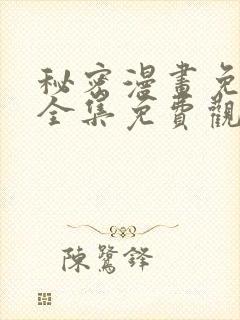 秘密漫畫免
全集免費觀
陳鷺鋒